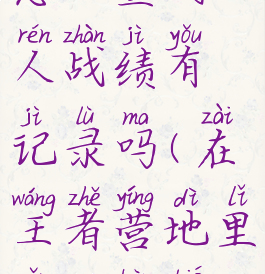 rén zhàn jì yǒu
人战绩有
jì lù ma zài
记录吗(在
wáng zhě yíng dì lǐ
王者营地里